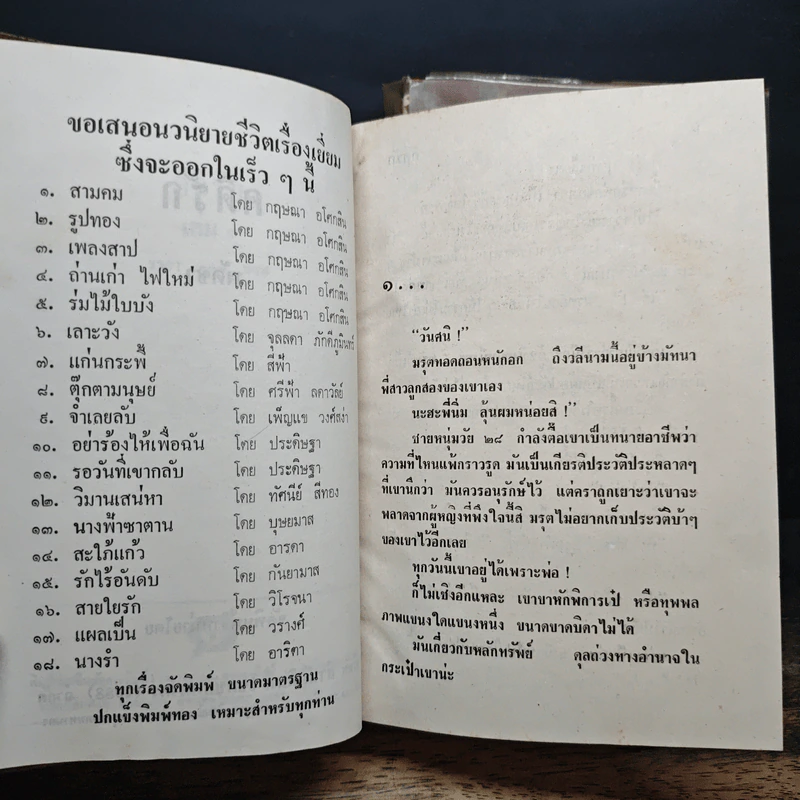 ขอเสนอนวนิยายชีวิตเรื่องเยี่ยม
ซึ่งจะออกในเร็ว ๆ นี้
๑. สามคม โดย กฤษณา อโศกสิน
๒. รูปทอง โดย กฤษณา อโศกสิน
๓. เพลงสาป โดย กฤษณา อโศกสิน
๔. ถ่านเก่า ไฟใหม่ โดย กฤษณา อโศกสิน
๕. ร่มไม้ใบบัง โดย กฤษณา อโศกสิน
๖. เลาะวัง โดย จุลลดา ภักดีภูมินทร์
๗. แก่นกระพี้ โดย สีฟ้า
๘. ตุ๊กตามนุษย์ โดย ศรีฟ้า ลดาวัลย์
๙. จำเลยลับ โดย เพ็ญแข วงศ์สง่า
๑๐. อย่าร้องไห้เพื่อฉัน โดย ประดิษฐา
๑๑. รอวันที่เขากลับ โดย ประดิษฐา
๑๒. วิมานเสน่หา โดย ทัศนีย์ สีทอง
๑๓. นางฟ้าซาตาน โดย บุษยมาส
๑๔. สะใภ้แก้ว โดย อารดา
๑๕. รักไร้อันดับ โดย กันยามาส
๑๖. สายใยรัก โดย วิโรจนา
๑๗. แผลเป็น โดย วรางค์
๑๘. นางรำ โดย อาริตา
ทุกเรื่องจัดพิมพ์ ขนาดมาตรฐาน
ปกแข็งพิมพ์ทอง เหมาะสำหรับทุกท่าน
๑...
“วันสนิ !”
มรุตทอดถอนหนักอก ถึงวลีนามนี้อยู่ข้างมัทนา
พี่สาวลูกสองของเขาเอง
นะฮะพี่นิ่ม ลุ้นผมหน่อยสิ !”
ชายหนุ่มวัย ๒๘ กำลังตื๊อเขาเป็นทนายอาชีพว่า
ความที่ไหนแพ้กราวรูด มันเป็นเกียรติประวัติประหลาดๆ
ที่เขานึกว่า มันควรอนุรักษ์ไว้ แต่คราถูกเยาะว่าเขาจะ
พลาดจากผู้หญิงที่พึงใจนี้สิ มรุตไม่อยากเก็บประวัติบ้าๆ
ของเขาไว้อีกเลย
ทุกวันนี้เขาอยู่ได้เพราะพ่อ !
ก็ไม่เชิงอีกแหละ เขาขาหักพิการเป๋ หรือทุพพล
ภาพแขนงใดแขนงหนึ่ง ขนาดขาดบิดาไม่ได้
มันเกี่ยวกับหลักทรัพย์ ดุลถ่วงทางอำนาจใน
กระเป๋าเขาน่ะ